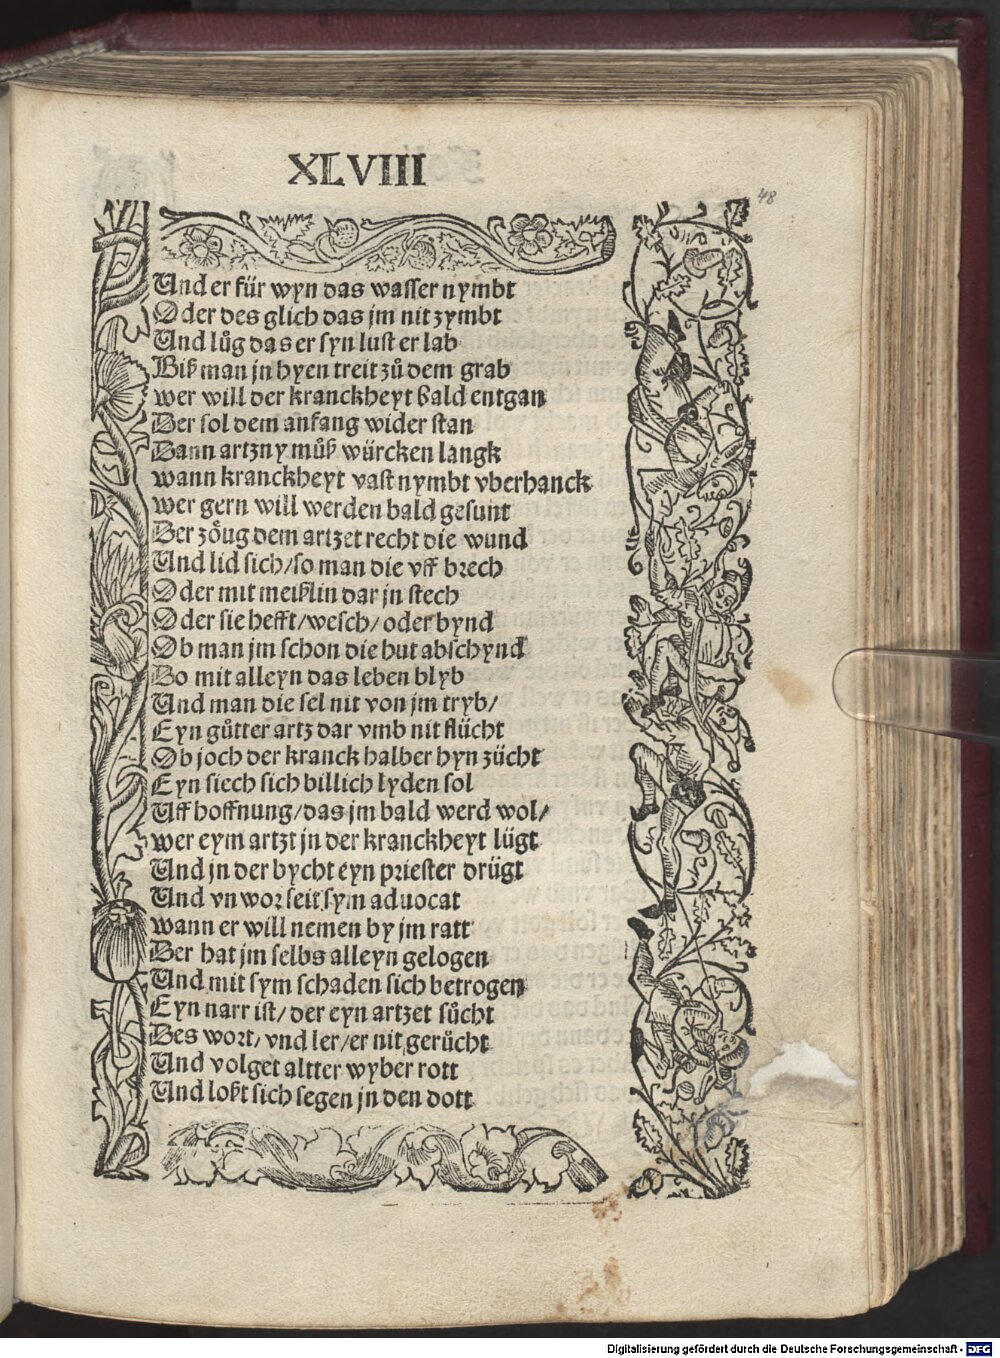 XLVIII
48
Und er für wyn das wasser nymbt
Oder des glich das jm nit zymbt
Und lůg das er syn lust er lab
Biß man jn hyen treit zů dem grab
wer will der kranckheyt bald entgan
Der sol dem anfang wider stan
Dann artzny můß würcken langk
wann kranckheyt vast nymbt vberhanck
wer gern will werden bald gesunt
Der zöug dem artzet recht die wund
Und lid sich/so man die vff brech
Oder mit meißlin dar jn stech
Oder sie hefft/wesch/oder bynd
Ob man jm schon die hut abschynd
Do mit alleyn das leben blyb
Und man die sel nit von jm tryb/
Eyn gůtter artz dar vmb nit flücht
Ob joch der kranck halber hyn zücht
Eyn siech sich billich lyden sol
Uff hoffnung/das jm bald werd wol/
wer eym artzt jn der kranckheyt lügt
Und jn der bycht eyn priester drügt
Und vnwor seit sym aduocat
wann er will nemen by jm ratt
Der hat jm selbs alleyn gelogen
Und mit sym schaden sich betrogen
Eyn narr ist/der eyn artzet sůcht
Des wort/vnd ler/er nit gerůcht
Und volget altter wyber rott
Und loßt sich segen jn den dott
Digitalisierung gefördert durch die Deutsche Forschungsgemeinschaft - DFG